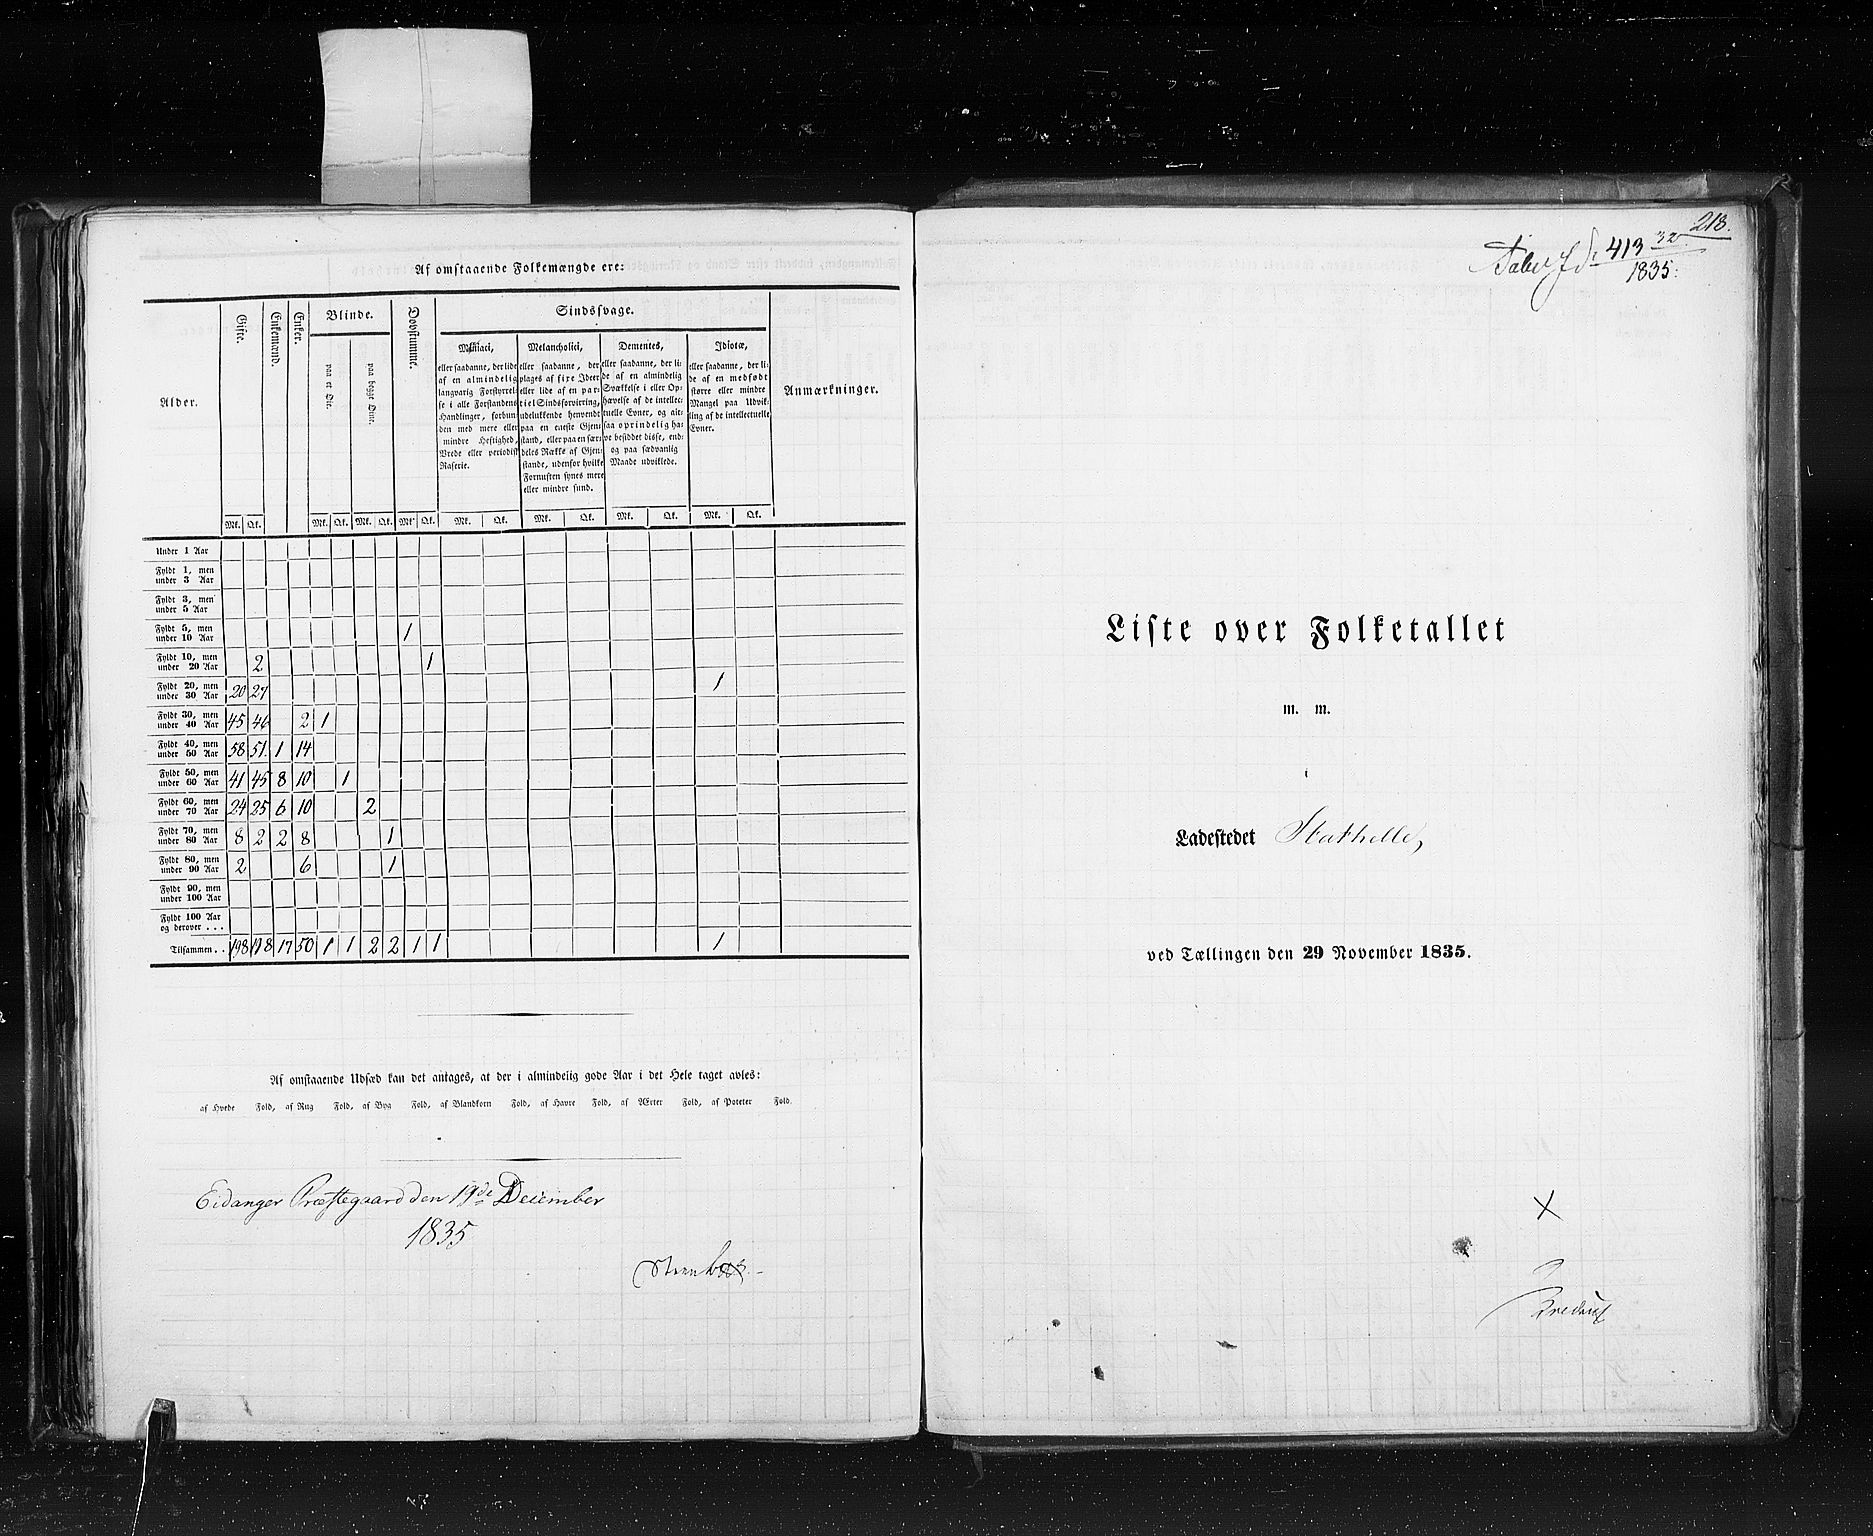 Af omstaaende Folkemængde ere:
Alder. Gifte. Enkemænd. Enker. Blinde. Døvstumme. Sindssvage. Anmærkninger.
paa et Øie. paa begge Øine.
Maniaci,
eller saadanne, der lide
af en almindelig
langvarig Forstyrrel-
se i alle Forstandens
Handlinger, forbun-
den med mere eller
mindre Heftighed,
Vrede eller periodisk
Raserie.
Melancholici,
eller saadanne, der
plages af fixe Ideer
eller lide af en par-
tiel Sindsforvirring,
udelukkende henvendt
paa en eneste Gjen-
stand, eller paa en sær-
deles Række af Gjen-
stande, udenfor hvilke
Fornuften synes mere
eller mindre sund.
Dementes,
eller saadanne, der li-
de af en almindelig
Svækkelse i eller Op-
hævelse af de intellec-
tuelle Evner, og alt-
saa oprindelig ha-
ve besiddet disse, end-
og paa sædvanlig
Maade udviklede.
Idiotæ,
eller saadanne, der li-
de af en medfødt
større eller mindre
Mangel paa Udvik-
ling af de intellectuelle
Evner.
Mk. Qk. Mk. Qk. Mk. Qk. Mk. Qk. Mk. Qk. Mk. Qk. Mk. Qk. Mk. Qk.
Under 1 Aar
Fyldt 1, men
under 3 Aar
Fyldt 3, men
under 5 Aar
Fyldt 5, men
under 10 Aar 1
Fyldt 10, men
under 20 Aar 2 1
Fyldt 20, men
under 30 Aar 20 27 1
Fyldt 30, men
under 40 Aar 45 46 2 1
Fyldt 40, men
under 50 Aar 58 51 1 14
Fyldt 50, men
under 60 Aar 41 45 8 10 1
Fyldt 60, men
under 70 Aar 24 25 6 10 2
Fyldt 70, men
under 80 Aar 8 2 2 8 1
Fyldt 80, men
under 90 Aar 2 6 1
Fyldt 90, men
under 100 Aar
Fyldt 100 Aar
og derover . . .
Tilsammen . . 198 198 17 50 1 1 2 2 1 1 1
Af omstaaende Udsæd kan det antages, at der i almindelig gode Aar i det Hele taget avles:
af Hvede Fold, af Rug Fold, af Byg Fold, af Blandkorn Fold, af Havre Fold, af Ærter Fold, af Poteter Fold.
Eidanger Præstegaard den 19de December
1835
218.
413 32
1835:
Liste over Folketallet
m. m.
i
Ladestedet Stathelle,
ved Tællingen den 29 November 1835.
X